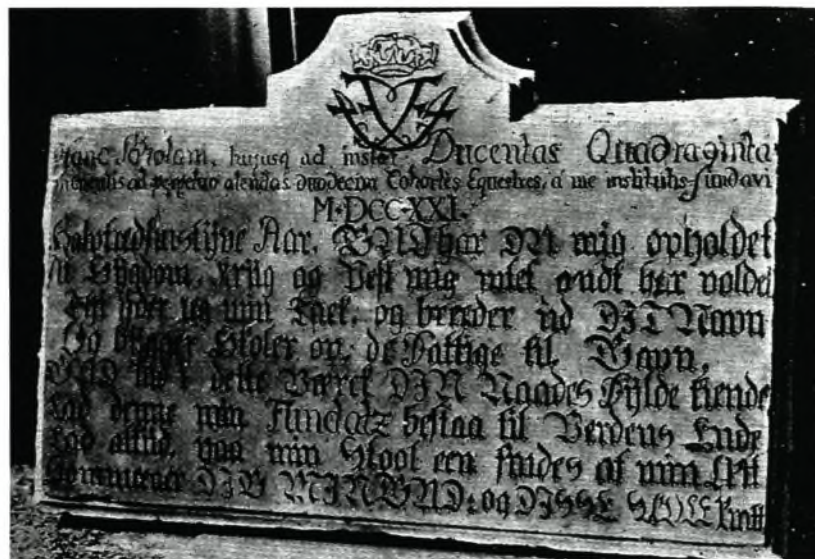 Hanc Scholam, hujusq ad instar Ducentas Quadraginta
ad perpetuo alendas duodecim Cohortes Equestres, á me institutis fundavi
M·DCC·XXI.
Halvtredsinstÿve Aar, GUD har DU mig opholdet
At Sÿgdom, Kriig og Pest mig intet ondt har voldet
Thi ÿder jeg min Tack, og breeder ud DIT Navn
Og bÿgger Skoler op, de Fattige til Gavn,
GUD lad i dette Værck DIN Naades Fÿlde kiende
Lad denne min Fundatz bestaa til Verdens Ende
Lad altiid, paa min Stool een findes af min Æt
Som meener DIG MIN GUD: og DISSE SKOLE Rætt